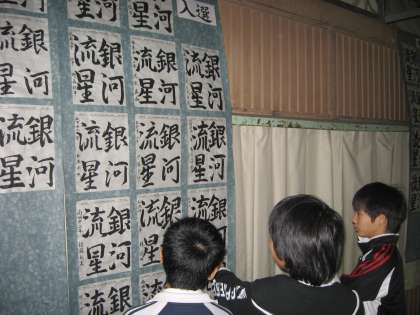 入選
銀河
流星
銀河
流星
銀
流
河
星
銀河
流星
銀河
流星
銀河
流星
河
星
銀河
流星
銀河
流星
銀河
流星
銀
流
河
星
銀河
流星
銀河
流星